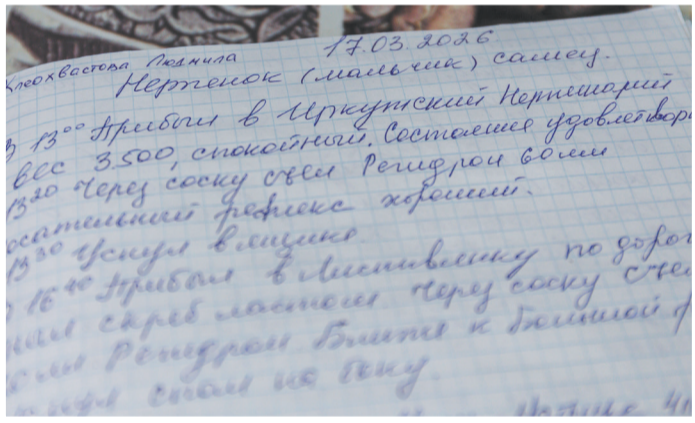 Хлеохвастова Людмила 17.03.2026
Нерпенок (мальчик) самец.
В 13⁰⁰ Прибыл в Иркутский Нерпинарий
вес 3.500, спокойный. Состояние удовлетвори
13²⁰ Через соску съел Регидрон 60 мл
осательный рефлекс хороший.
13³⁰ Уснул в ящике
16⁴⁰ Прибыл в Листвянку по дорог
скреб ластами Через соску съел
мл Регидрон Ближе к большой
спал на боку.